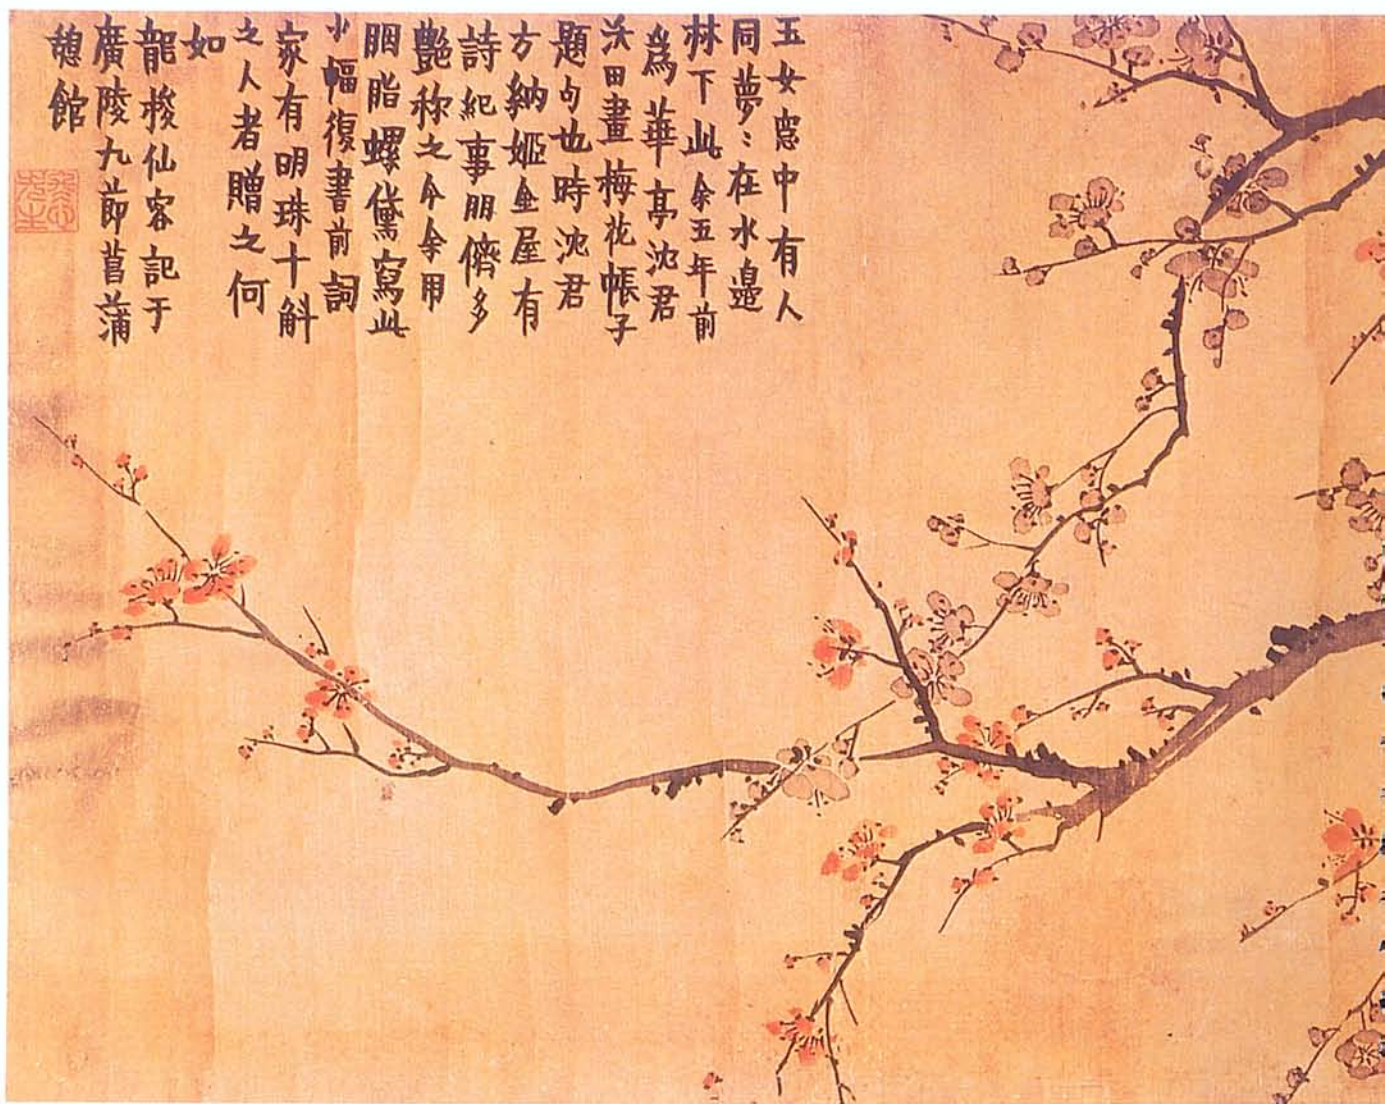 玉女窓中有人
同夢〻在水邊
林下此余五年前
爲華亭沈君
沃田畫梅花帳子
題句也時沈君
方納姬金屋有
詩紀事朋儕多
艷称之今余用
胭脂螺黛寫此
小幅復書前詞
家有明珠十斛
之人者贈之何
如
龍梭仙客記于
廣陵九節菖蒲
憩館